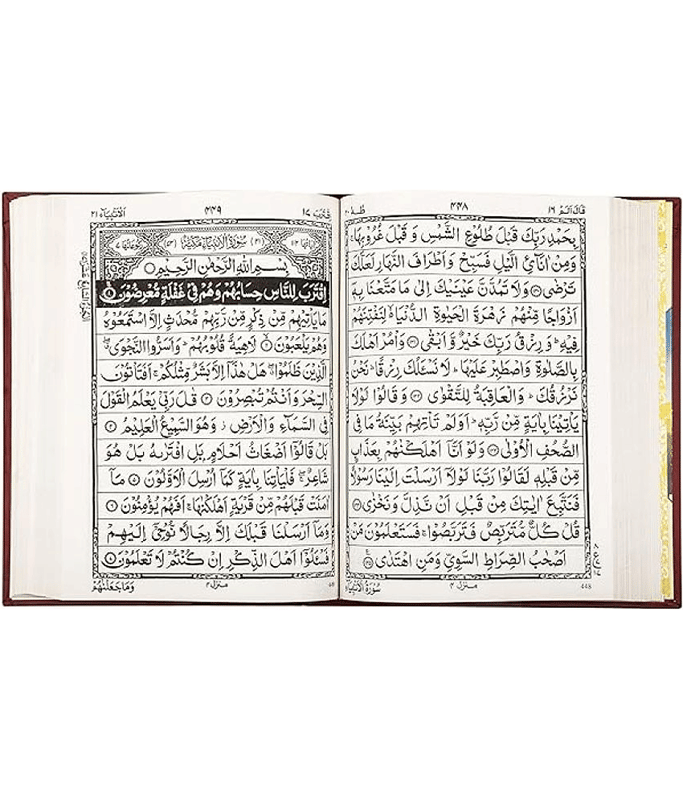 قَالَ اَلَمْ ١٦ ٤٤٨ طٰهٰ ٢٠
بِحَمْدِ رَبِّكَ قَبْلَ طُلُوْعِ الشَّمْسِ وَ قَبْلَ غُرُوْبِهَا ۚ
وَمِنْ اٰنَآئِ الَّيْلِ فَسَبِّحْ وَ اَطْرَافَ النَّهَارِ لَعَلَّكَ
تَرْضٰى ۝ وَلَا تَمُدَّنَّ عَيْنَيْكَ اِلٰى مَا مَتَّعْنَا بِهٖۤ
اَزْوَاجًا مِّنْهُمْ زَهْرَةَ الْحَيٰوةِ الدُّنْيَا ۙ لِنَفْتِنَهُمْ
فِيْهِ ؕ وَ رِزْقُ رَبِّكَ خَيْرٌ وَّ اَبْقٰى ۝ وَاْمُرْ اَهْلَكَ
بِالصَّلٰوةِ وَ اصْطَبِرْ عَلَيْهَا ؕ لَا نَسْئَلُكَ رِزْقًا ؕ نَحْنُ
نَرْزُقُكَ ؕ وَ الْعَاقِبَةُ لِلتَّقْوٰى ۝ وَ قَالُوْا لَوْ لَا
يَاْتِيْنَا بِاٰيَةٍ مِّنْ رَّبِّهٖ ؕ اَوَ لَمْ تَاْتِهِمْ بَيِّنَةُ مَا فِى
الصُّحُفِ الْاُوْلٰى ۝ وَ لَوْ اَنَّاۤ اَهْلَكْنٰهُمْ بِعَذَابٍ
مِّنْ قَبْلِهٖ لَقَالُوْا رَبَّنَا لَوْ لَاۤ اَرْسَلْتَ اِلَيْنَا رَسُوْلًا
فَنَتَّبِعَ اٰيٰتِكَ مِنْ قَبْلِ اَنْ نَّذِلَّ وَ نَخْزٰى ۝
قُلْ كُلٌّ مُّتَرَبِّصٌ فَتَرَبَّصُوْا ۚ فَسَتَعْلَمُوْنَ مَنْ
اَصْحٰبُ الصِّرَاطِ السَّوِيِّ وَ مَنِ اهْتَدٰى ۝
٤٤٨ منزل ٤ سُوْرَةُ الْاَنْبِيَآءِ
اِقْتَرَبَ ١٧ ٤٤٩ اَلْاَنْبِيَآء ٢١
سُوْرَةُ الْاَنْبِيَآءِ مَكِّيَّةٌ
بِسْمِ اللّٰهِ الرَّحْمٰنِ الرَّحِيْمِ
اِقْتَرَبَ لِلنَّاسِ حِسَابُهُمْ وَهُمْ فِيْ غَفْلَةٍ مُّعْرِضُوْنَ ۝١
مَا يَاْتِيْهِمْ مِّنْ ذِكْرٍ مِّنْ رَّبِّهِمْ مُّحْدَثٍ اِلَّا اسْتَمَعُوْهُ
وَهُمْ يَلْعَبُوْنَ ۝٢ لَاهِيَةً قُلُوْبُهُمْ ؕ وَ اَسَرُّوا النَّجْوَى ۖ
الَّذِيْنَ ظَلَمُوْا ۖ هَلْ هٰذَاۤ اِلَّا بَشَرٌ مِّثْلُكُمْ ۚ اَفَتَاْتُوْنَ
السِّحْرَ وَ اَنْتُمْ تُبْصِرُوْنَ ۝٣ قٰلَ رَبِّيْ يَعْلَمُ الْقَوْلَ
فِى السَّمَآءِ وَالْاَرْضِ ۫ وَ هُوَ السَّمِيْعُ الْعَلِيْمُ ۝٤
بَلْ قَالُوْۤا اَضْغَاثُ اَحْلَامٍۭ بَلِ افْتَرٰىهُ بَلْ هُوَ
شَاعِرٌ ۖ فَلْيَاْتِنَا بِاٰيَةٍ كَمَاۤ اُرْسِلَ الْاَوَّلُوْنَ ۝٥ مَاۤ
اٰمَنَتْ قَبْلَهُمْ مِّنْ قَرْيَةٍ اَهْلَكْنٰهَا ۚ اَفَهُمْ يُؤْمِنُوْنَ ۝٦
وَ مَاۤ اَرْسَلْنَا قَبْلَكَ اِلَّا رِجَالًا نُّوْحِيْۤ اِلَيْهِمْ
فَسْئَلُوْۤا اَهْلَ الذِّكْرِ اِنْ كُنْتُمْ لَا تَعْلَمُوْنَ ۝٧
منزل ٤ وَمَا جَعَلْنٰهُمْ